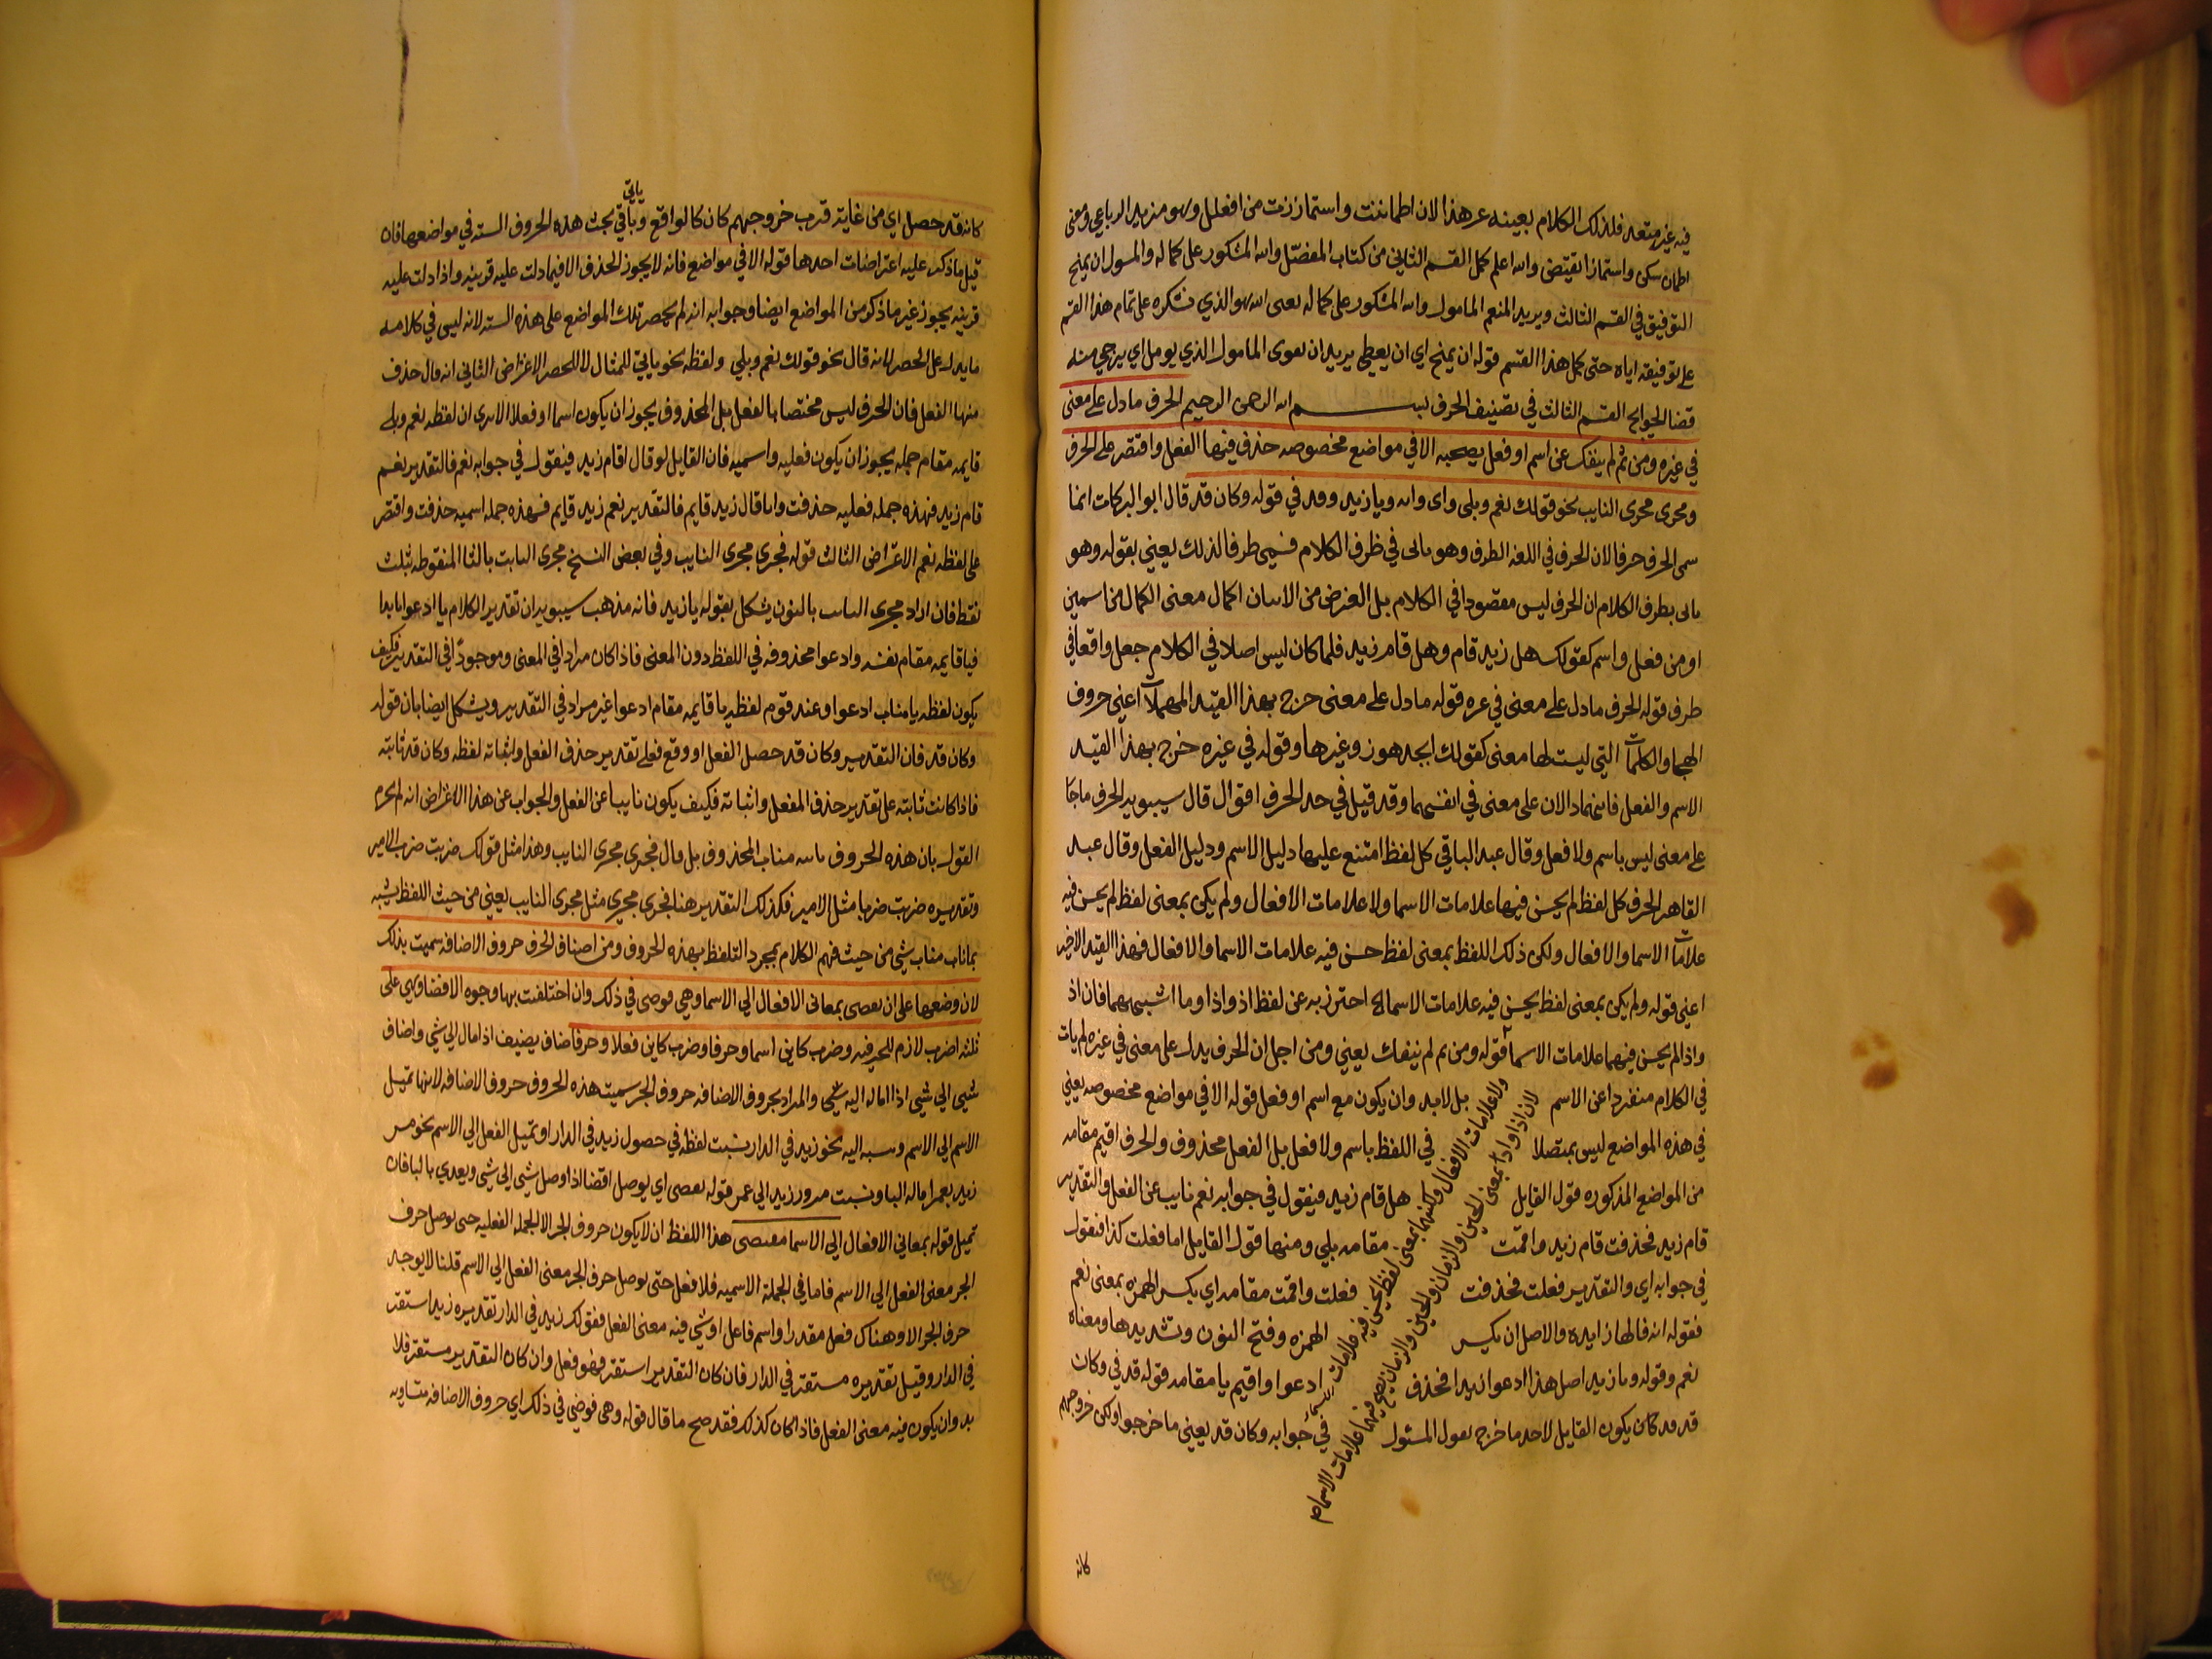 فيه غير متعد فلذلك الكلام بعينه عن هذا الان اطماننت واستمازرت من افعلل وهو مزيد الرباعي ومعنى
اطمان سكن واستماز انقبض والله اعلم كمل القسم الثاني من كتاب المفصل والله المشكور على كماله والمسول ان يمنح
التوفيق في القسم الثالث ويريد المنعم المامول والله المشكور على كماله يعنى الله هو الذي نشكره على تمام هذا القسم
على توفيقه اياه حتى كمل هذا القسم قوله ان يمنح اي ان يعطي يريد ان يقوى المامول الذي يومل اي يرجي منه
قضا الحوايج القسم الثالث في تصنيف الحرف بسم الله الرحمن الرحيم الحرف مادل على معنى
في غيره ومن ثم لم ينفك عن اسم او فعل يصحبه الا في مواضع مخصوصه حذف فيها الفعل واقتصر على الحرف
ومجرى مجرى النايب نحو قولك نعم وبلى واى وانه ويا زيد وقد في قوله وكان قد قال ابو البركات انما
سمى الحرف حرفا لان الحرف في اللغه الطرف وهو ياتى في طرف الكلام فسمى طرفا لذلك يعني بقوله وهو
ياتى بطرف الكلام ان الحرف ليس مقصودا في الكلام بل الغرض من الاتيان اكمال معنى الكمال من اسمين
او من فعل واسم كقولك هل زيد قام وهل قام زيد فلما كان ليس اصلا في الكلام جعل واقعا في
طرف قوله الحرف مادل على معنى في غيره قوله مادل على معنى خرج بهذا القيد المهملات اعني حروف
الهجا والكلمات التي ليست لها معنى كقولك ابجد هوز وغيرها وقوله في غيره خرج بهذا القيد
الاسم والفعل فانهما دالان على معنى في انفسهما وقد قيل في حد الحرف اقوال قال سيبويه الحرف ماجا
على معنى ليس باسم ولا فعل وقال عبد الباقي كل لفظ امتنع عليها دليل الاسم ودليل الفعل وقال عبد
القاهر الحرف كل لفظ لم يحسن فيها علامات الاسما ولا علامات الافعال ولم يكن بمعنى لفظ لم يحسن فيه
علامات الاسما والافعال ولكن ذلك اللفظ بمعنى لفظ حسن فيه علامات الاسما والافعال فهذا القيد الاخير
اعني قوله ولم يكن بمعنى لفظ يحسن فيه علامات الاسما الخ احترز به عن لفظ اذ واذا وما اشبههما فان اذ
واذا لم يحسن فيهما علامات الاسما قوله ومن ثم لم ينفك يعني ومن اجل ان الحرف يدل على معنى في غيره لم يات
في الكلام منفردا عن الاسم بل لابد وان يكون مع اسم او فعل قوله الا في مواضع مخصوصه يعني
في هذه المواضع ليس بمتصلا في اللفظ باسم ولا فعل بل الفعل محذوف والحرف اقيم مقامه
من المواضع المذكوره قول القايل هل قام زيد فيقول في جوابه نعم نايب عن الفعل والتقدير
قام زيد فحذفت قام زيد واقمت مقامه بلي ومنها قول القايل اما فعلت كذا فتقول
في جوابه اي والتقدير فعلت فحذفت فعلت واقمت مقامه اي بكسر الهمزه بمعنى نعم
فقوله انه فالها زايده والاصل ان بكسر الهمزه وفتح النون وتشديدها ومعناه
نعم وقوله ويا زيد اصل هذا ادعوا زيدا فحذف ادعوا واقيم يا مقامه قوله قد في وكان
قد قد كان يكون القايل لاحد ما خرج يقول المسئول في جوابه وكان قد يعني ما خرجوا ولكن خروجهم
ولا علامات الافعال ولكنهما بمعنى لفظ يحسن فيه علامات الاسما
لان اذ واذا بمعنى الحين والزمان والحين والزمان يصح فيهما علامات الاسماء
كانه
كانه قد حصل اي من غاية قرب خروجهم كان كالواقع وياتي بحث هذه الحروف السته في مواضعها فان
ياتي
قيل ما ذكر عليه اعتراضات احدها قوله الا في مواضع فانه لا يجوز الحذف الا فيما دلت عليه قرينه واذا دلت عليه
قرينه يجوز غير ما ذكر من المواضع ايضا وجوابه انه لم يحصر تلك المواضع على هذه السته لانه ليس في كلامه
ما يدل على الحصر لانه قال نحو قولك نعم وبلي ولفظه نحو ياتي للمثال لا للحصر الاعتراض الثاني انه قال حذف
منها الفعل فان الحرف ليس مختصا بالفعل بل المحذوف يجوز ان يكون اسما او فعلا الا ترى ان لفظه نعم وبلى
قايمه مقام جمله يجوز ان يكون فعليه واسميه فان القايل لو قال اقام زيد فيقول في جوابه نعم فالتقدير نعم
قام زيد فهذه جمله فعليه حذفت واما قال زيد قايم فالتقدير نعم زيد قايم فهذه جمله اسميه حذفت واقتصر
على لفظه نعم الاعتراض الثالث قوله فجرى مجرى النايب وفي بعض النسخ مجرى الثابت بالثا المنقوطه بثلث
نقط فان اراد مجرى النايب بالنون يشكل بقوله يا زيد فانه مذهب سيبويه ان تقدير الكلام يا ادعوا زيدا
فيا قايمه مقام نفسه وادعوا محذوفه في اللفظ دون المعنى فاذا كان مرادا في المعنى وموجودا في التقدير فكيف
يكون لفظه يا مناب ادعوا وعند قوم لفظه يا قايمه مقام ادعوا غير مراد في التقدير ويشكل ايضا بان قوله
وكان قد فان التقدير وكان قد حصل الفعل او وقع فعلى تقدير حذف الفعل واثباته لفظه وكان قد ثابته
فاذا كانت ثابته على تقدير حذف الفعل واثباته فكيف يكون نايبا عن الفعل والجواب عن هذا الاعتراض انه لم يجزم
القول بان هذه الحروف نايبه مناب المحذوف بل قال فجرى مجرى النايب وهذا مثل قولك ضربت ضرب الامير
وتقديره ضربت ضربا مثل الامير فكذلك التقدير هنا فجرى مجرى مثل مجرى النايب يعني من حيث اللفظ يشبه
بما ناب مناب شي من حيث فهم الكلام بمجرد التلفظ بهذه الحروف ومن اصناف الحرف حروف الاضافه سميت بذلك
لان وضعها على ان تفضى بمعانى الافعال الي الاسما وهي فوضى في ذلك وان اختلفت بها وجوه الافضا وهي على
ثلثه اضرب لازم للحرفيه وضرب كاين اسما وحرفا وضرب كاين فعلا وحرفا ضاف يضيف اذا مال الي شي واضاف
شيى الي شيى اذا اماله اليه شي والمراد بحروف الاضافه حروف الجر سميت هذه الحروف حروف الاضافه لانها تميل
الاسم الي الاسم ونسبه اليه نحو زيد في الدار نسبت لفظه في حصول زيد في الدار او تميل الفعل الي الاسم نحو مر
زيد بعمر اماله البا ونسبت مرور زيد الي عمر قوله تفضى اي يوصل افضا اذا وصل شيى الي شيى ويعدي بالبا فان
تميل قوله بمعاني الافعال الي الاسما مقتضى هذا اللفظ ان لا يكون حروف الجر الا للجمله الفعليه حتى توصل حرف
الجر معنى الفعل الي الاسم فاما في الجملة الاسميه فلا فعل حتى توصل حرف الجر معنى الفعل الي الاسم قلنا لا يوجد
حرف الجر الا وهناك فعل مقدرا واسم فاعل او شي فيه معنى الفعل فقولك زيد في الدار تقديره زيد استقر
في الدار وقيل تقديره مستقر في الدار فان كان التقدير استقر فهو فعل وان كان التقدير مستقر فلا
بد وان يكون فيه معنى الفعل فاذا كان كذلك فقد صح ما قال قوله وهي فوضى في ذلك اي حروف الاضافه متساويه